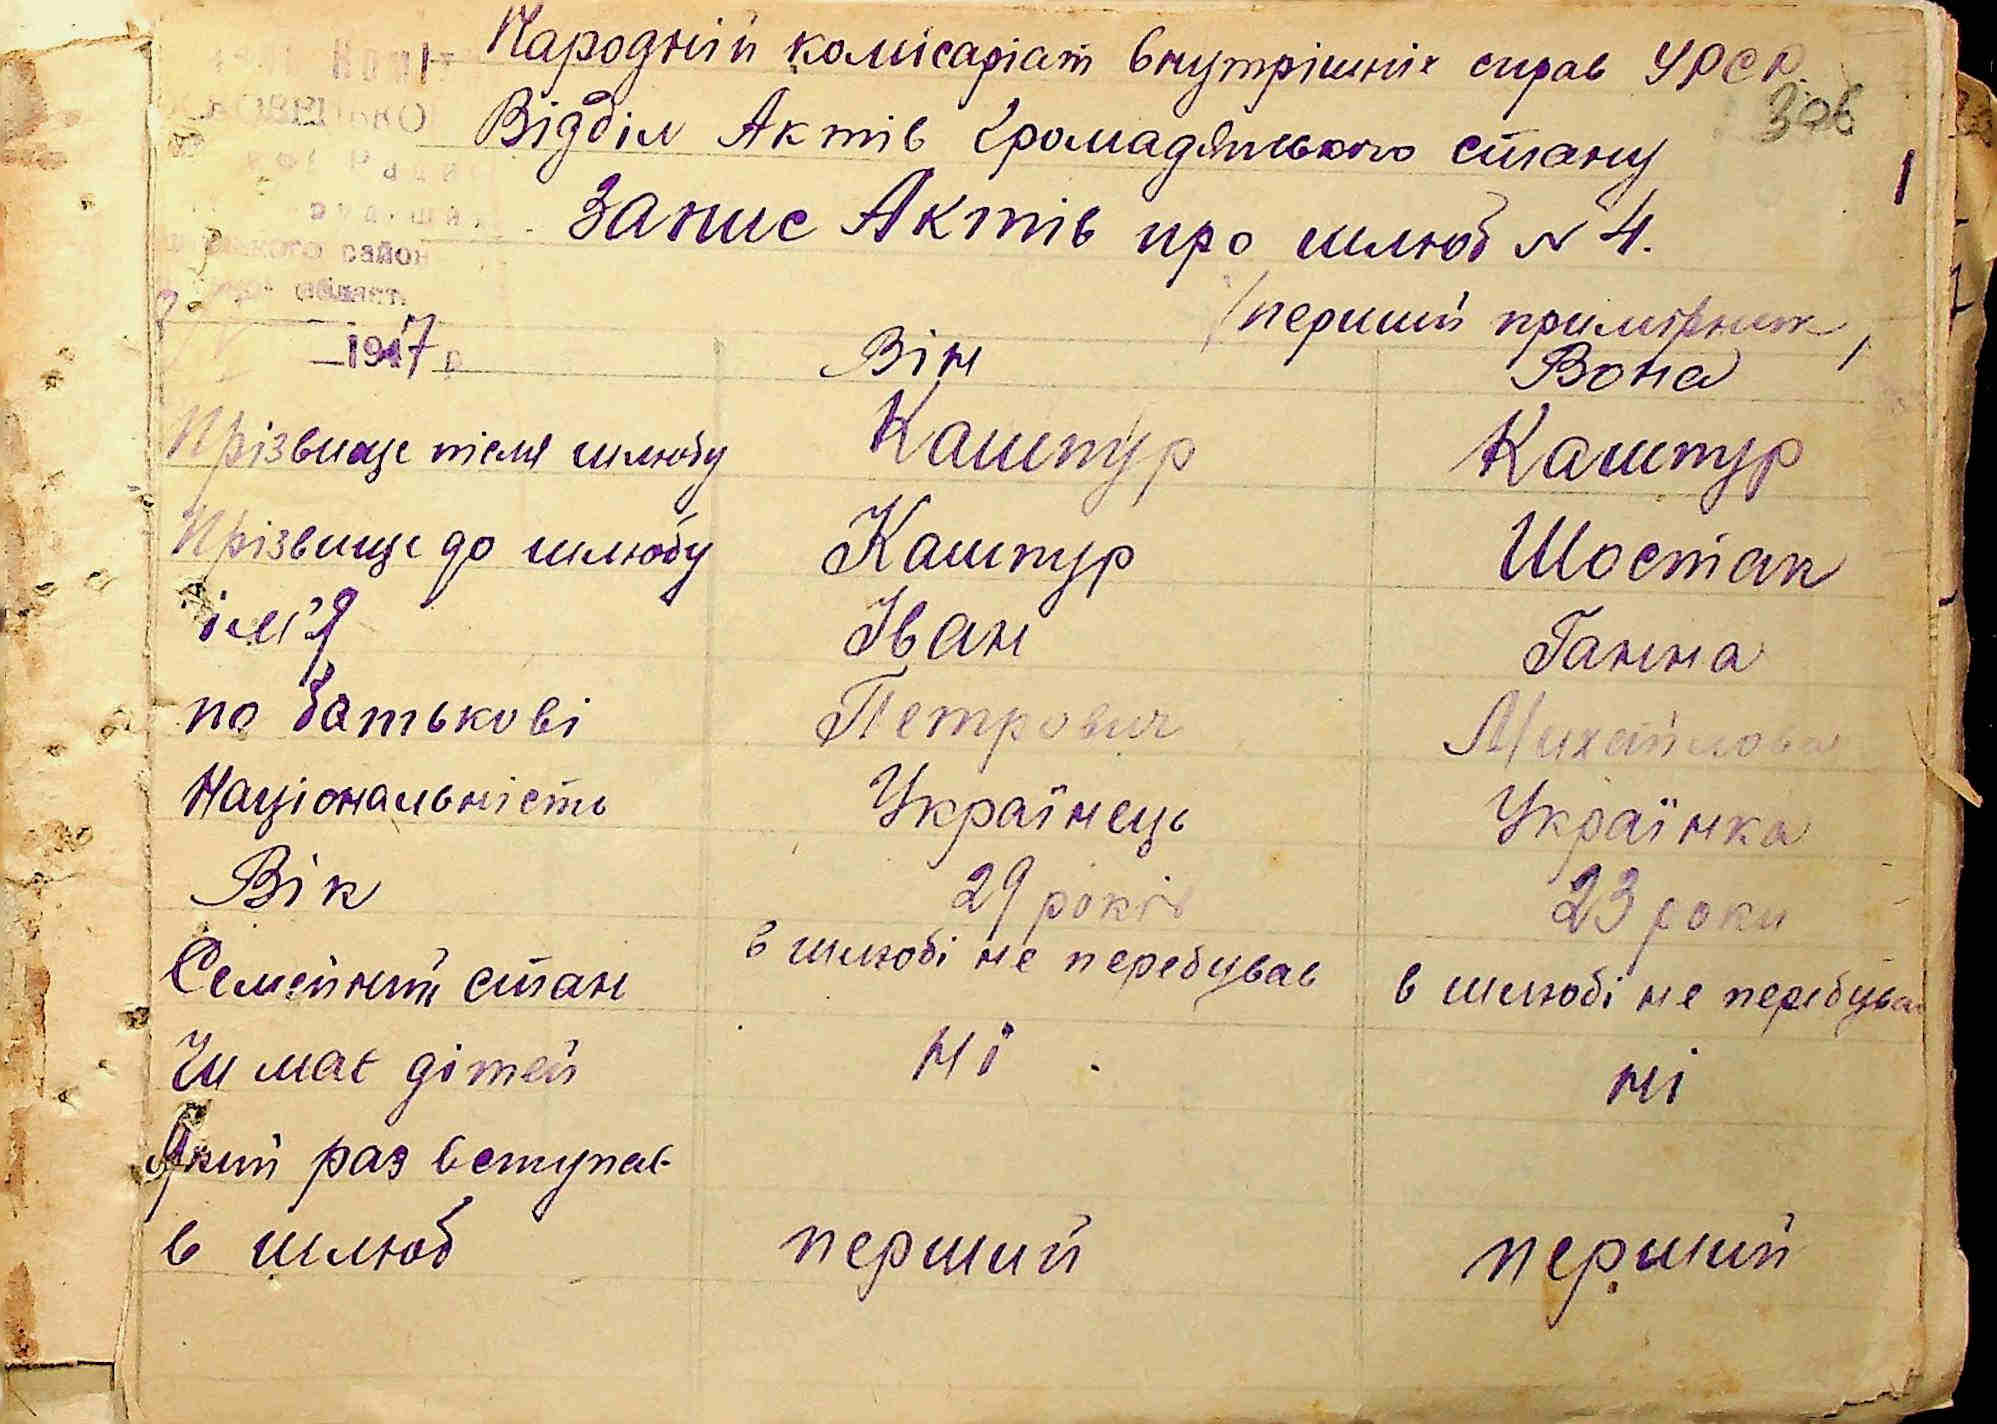 Народній комісаріат внутрішніх справ УРСР.
306
Відділ Актів Громадянського стану
1
Запис Актів про шлюб № 4.
район
област.
/перший примірник/
1947 р
Він Вона
Прізвище після шлюбу Каштур Каштур
Прізвище до шлюбу Каштур Шостак
ім'я Іван Ганна
по батькові Петрович Михайловна
Національність Українець Українка
Вік 29 років 23 роки
Семейний стан в шлюбі не перебував в шлюбі не перебува
Чи має дітей ні ні
Який раз вступає
в шлюб перший перший